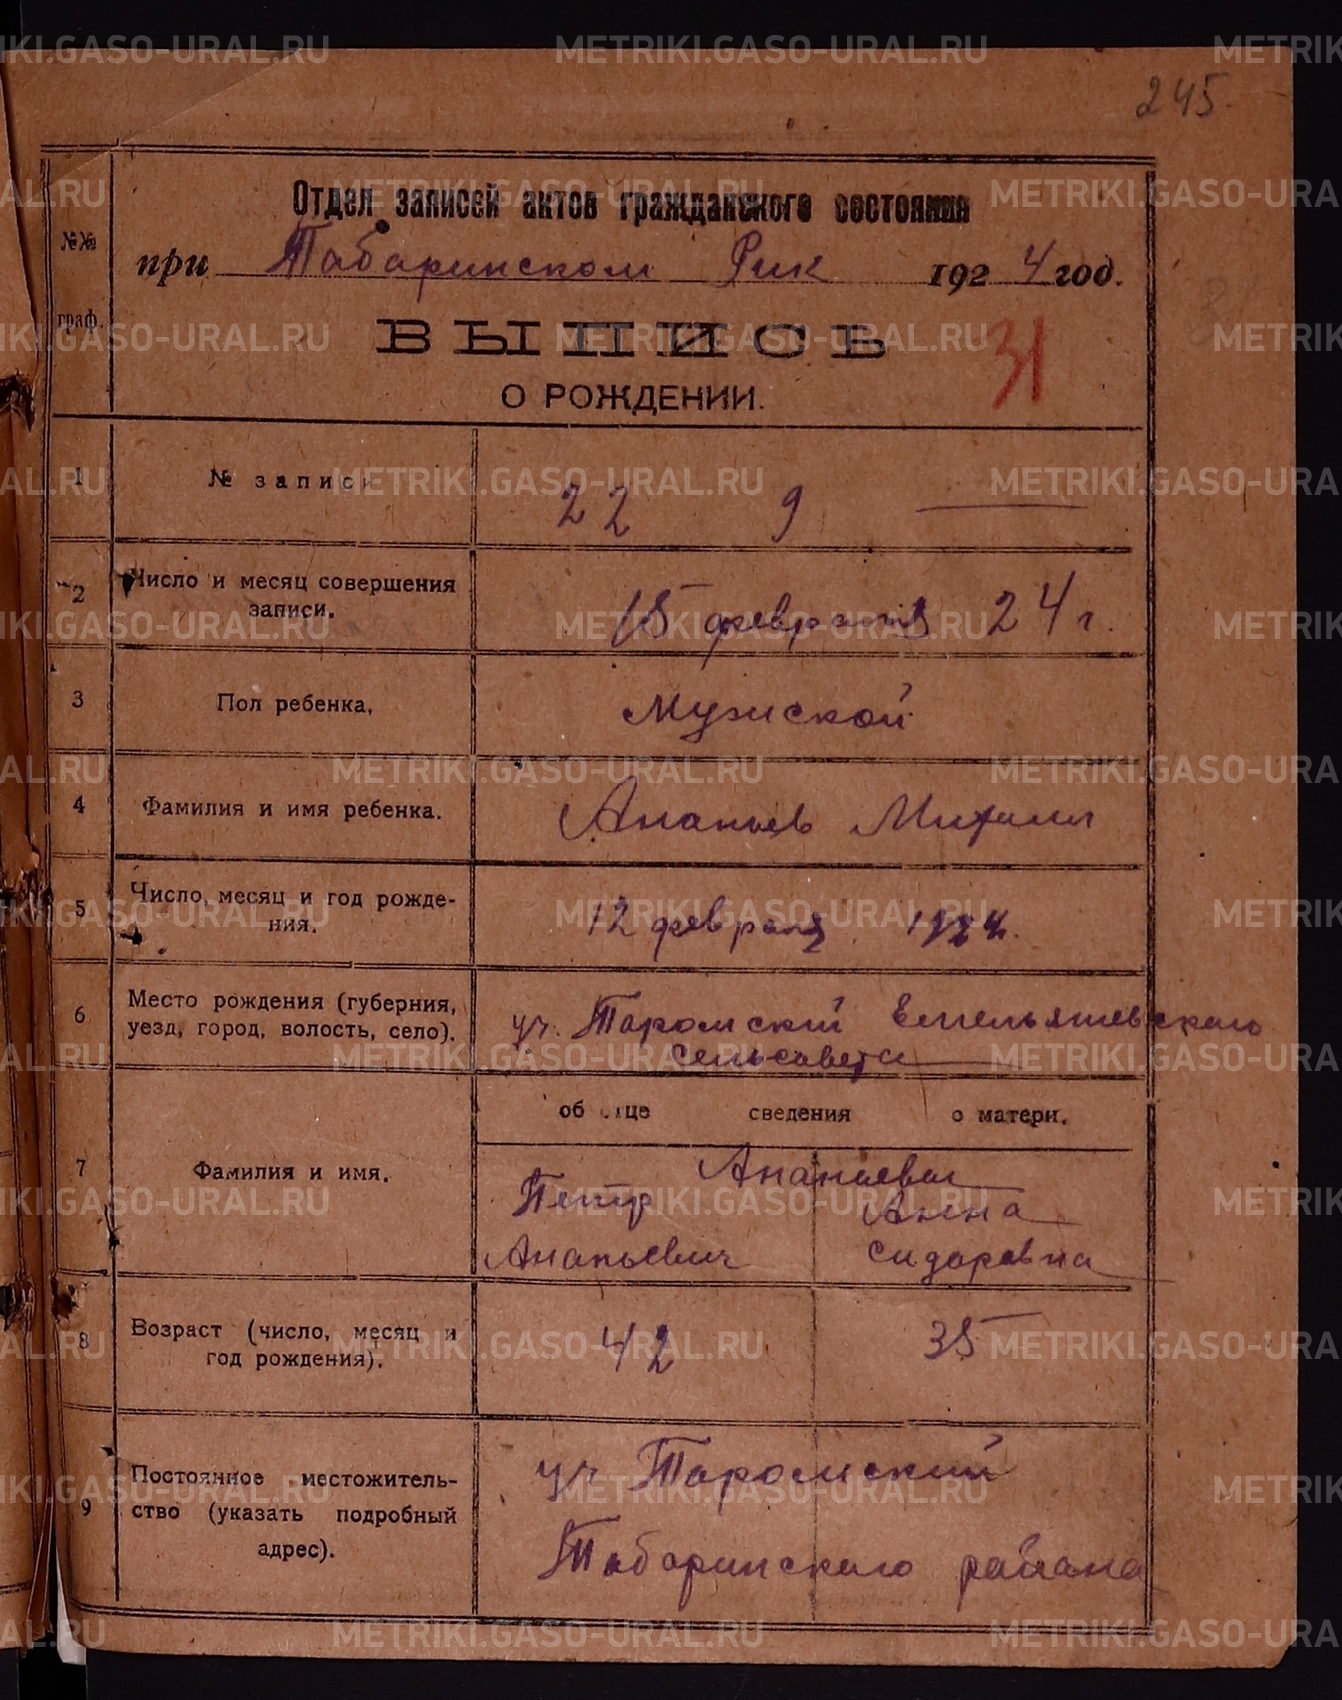 METRIKI.GASO-URAL.RU
245
№№ граф.
Отдел записей актов гражданского состояния
при Табаринском Рик 1924 год.
ВЫПИСЬ
31
О РОЖДЕНИИ.
1 № записи 22 9 —
2 Число и месяц совершения записи. 15 февраля 24 г.
3 Пол ребенка. Мужской
4 Фамилия и имя ребенка. Ананьев Михаил
5 Число, месяц и год рождения. 12 февраля 1924.
6 Место рождения (губерния, уезд, город, волость, село). уч. Таромский Емельяшевского
сельсовета
об отце сведения о матери.
7 Фамилия и имя. Ананьевы
Петр Анна
Ананьевич Сидоровна
8 Возраст (число, месяц и год рождения). 42 35
9 Постоянное местожительство (указать подробный адрес). уч Таромский
Табаринского района